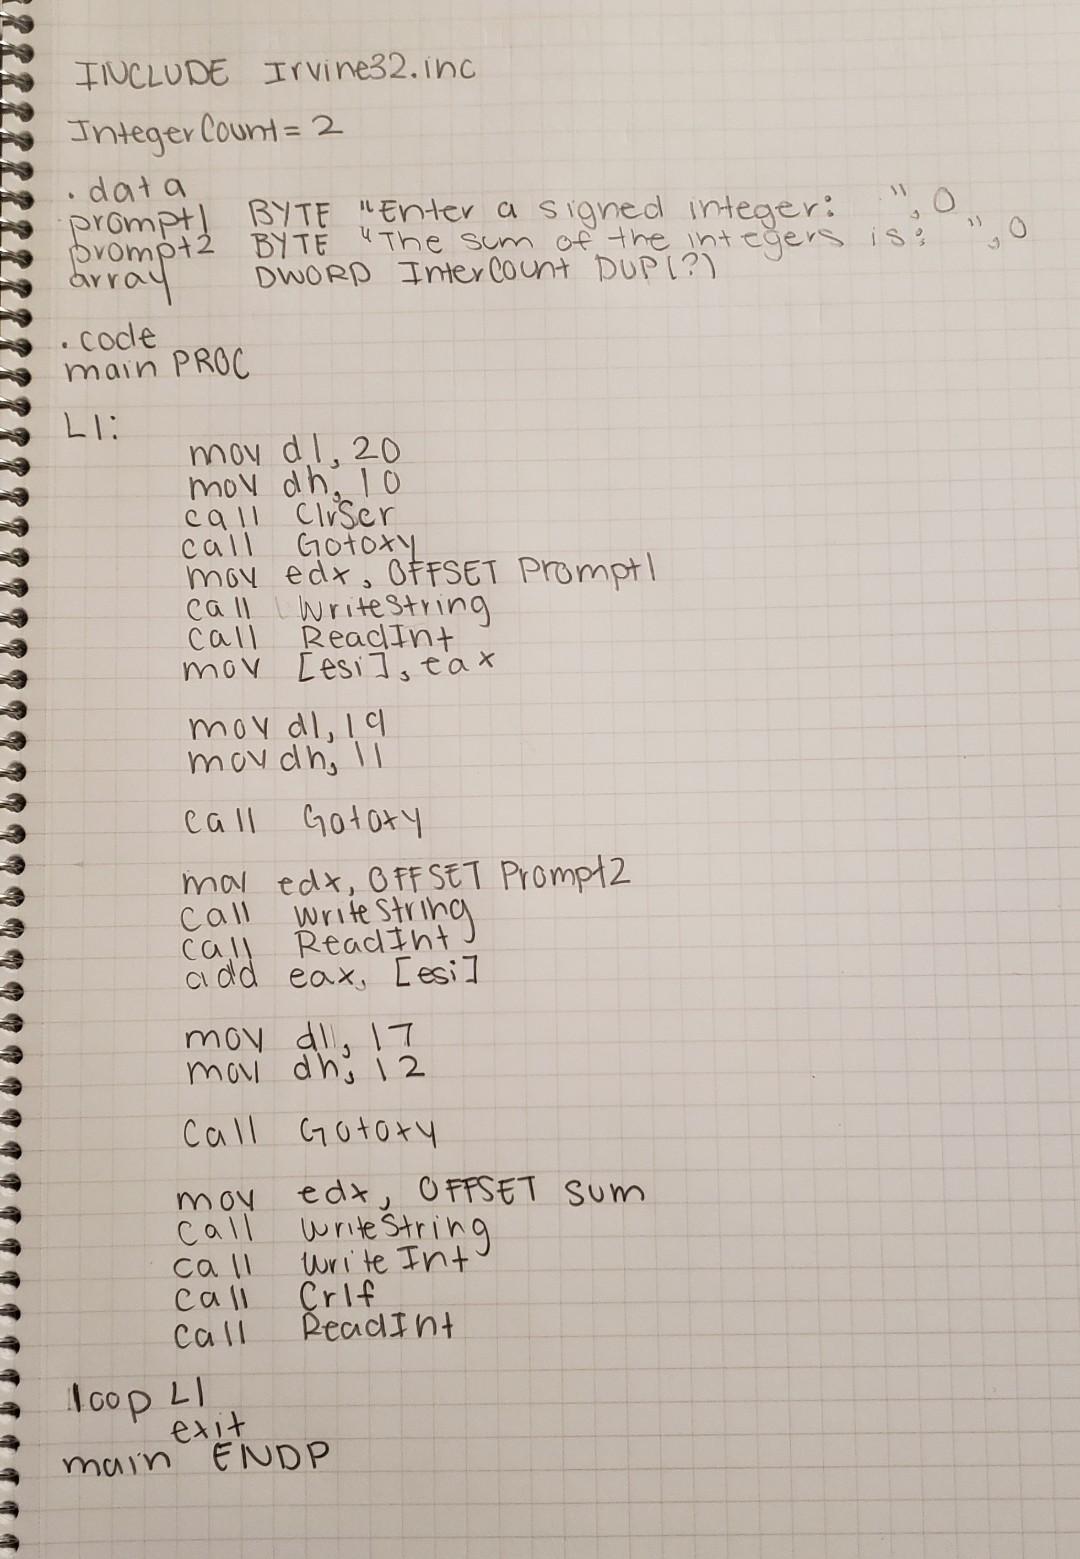 INCLUDE Irvine32.inc
IntegerCount = 2
.data
prompt1 BYTE "Enter a signed integer: ", 0
prompt2 BYTE "The sum of the integers is: ", 0
array DWORD InterCount DUP(?)
.code
main PROC
L1:
mov dl, 20
mov dh, 10
call ClrScr
call Gotoxy
mov edx, OFFSET Prompt1
call WriteString
call ReadInt
mov [esi], eax
mov dl, 19
mov dh, 11
call Gotoxy
mov edx, OFFSET Prompt2
call WriteString
call ReadInt
add eax, [esi]
mov dl, 17
mov dh, 12
call Gotoxy
mov edx, OFFSET sum
call WriteString
call WriteInt
call Crlf
call ReadInt
loop L1
exit
main ENDP